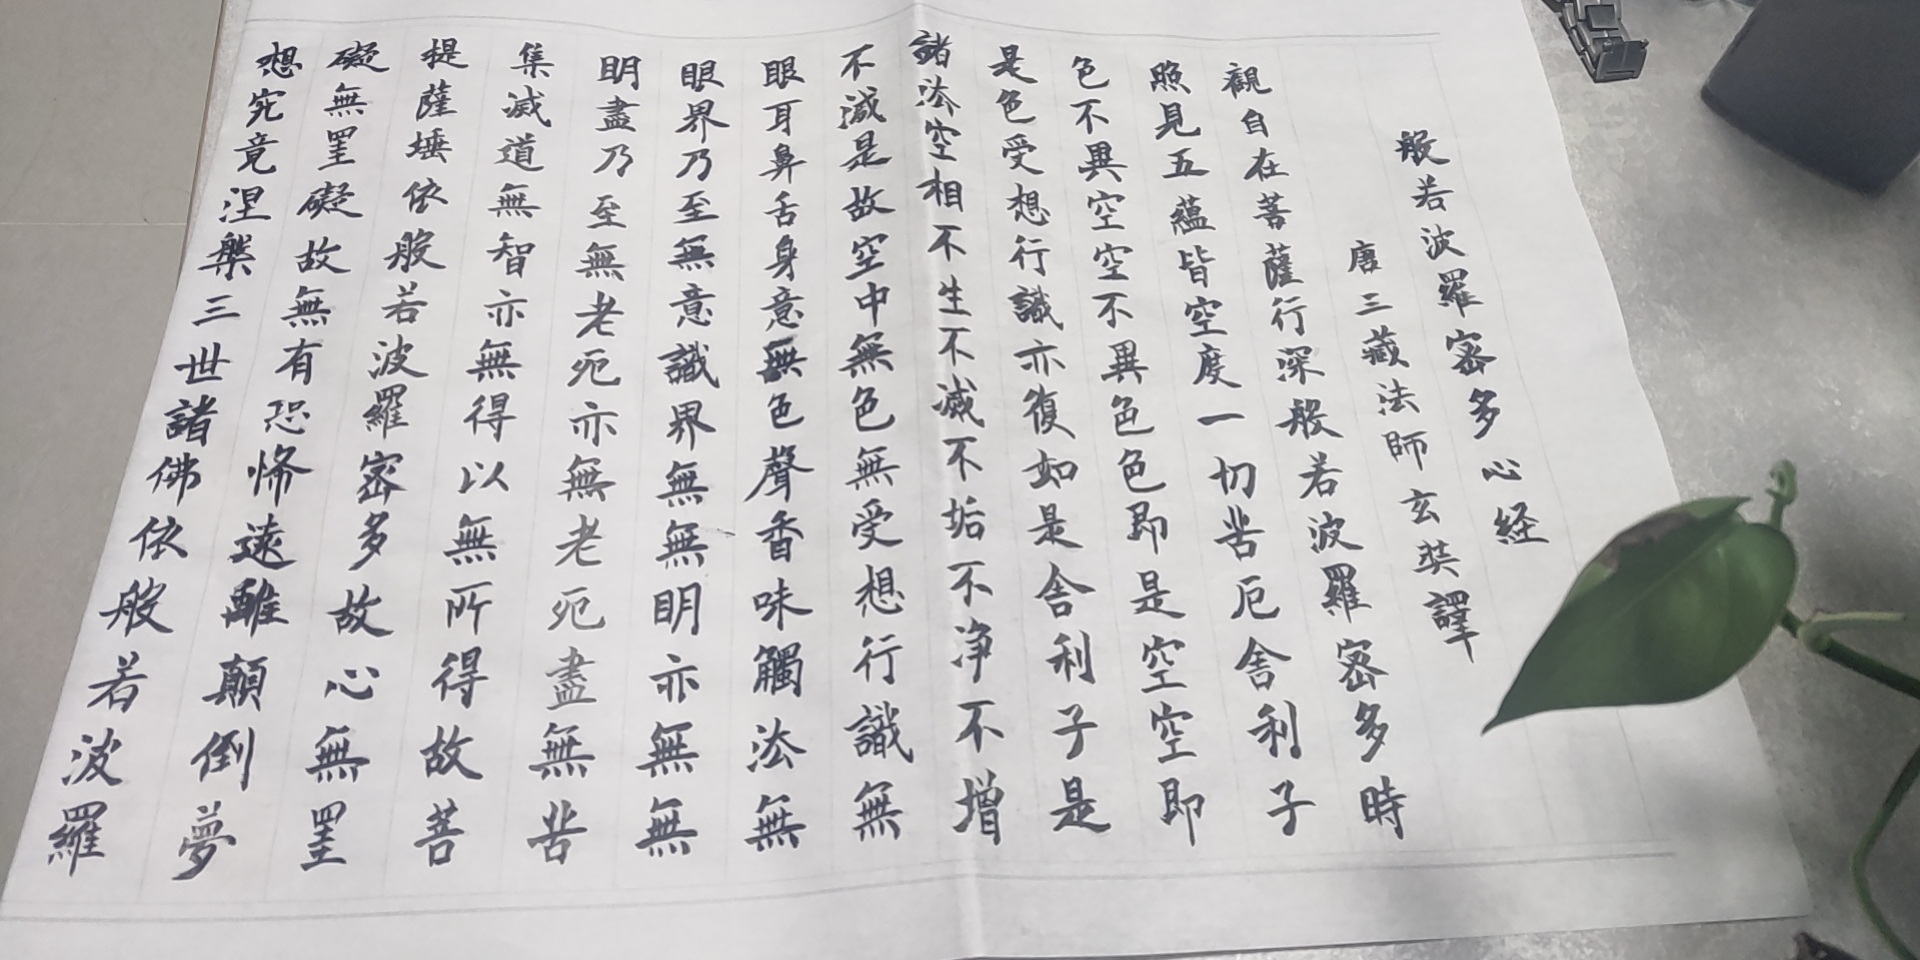 般若波羅密多心経
唐三藏法師玄奘譯
觀自在菩薩行深般若波羅密多時
照見五蘊皆空度一切苦厄舍利子
色不異空空不異色色即是空空即
是色受想行識亦復如是舍利子是
諸法空相不生不滅不垢不净不增
不滅是故空中無色無受想行識無
眼耳鼻舌身意無色聲香味觸法無
眼界乃至無意識界無無明亦無無
明盡乃至無老死亦無老死盡無苦
集滅道無智亦無得以無所得故菩
提薩埵依般若波羅密多故心無罣
礙無罣礙故無有恐怖遠離顛倒夢
想究竟涅槃三世諸佛依般若波羅